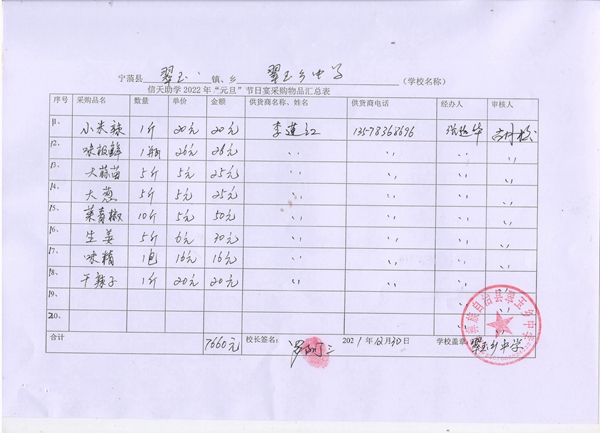 宁蒗县 翠玉 镇、乡 翠玉乡中学 （学校名称）
信天助学 2022 年“元旦”节日宴采购物品汇总表
序号 采购品名 数量 单价 金额 供货商名称、姓名 供货商电话 经办人 审核人
11、 小米辣 1斤 20元 20元 李莲红 13578368696
12、 味极鲜 1瓶 26元 26元 〃 〃 〃 〃
13、 大蒜苗 5斤 5元 25元 〃 〃 〃 〃
14、 大葱 5斤 5元 25元 〃 〃 〃 〃
15、 菜青椒 10斤 5元 50元 〃 〃 〃 〃
16、 生姜 5斤 6元 30元 〃 〃 〃 〃
17、 味精 1包 16元 16元 〃 〃 〃 〃
18、 干辣子 1斤 20元 20元 〃 〃 〃 〃
19、 〃
20、 〃
合计 7660元 校长签名： 2021年12月30日 学校盖章： 翠玉乡中学
彝族自治县翠玉乡中学